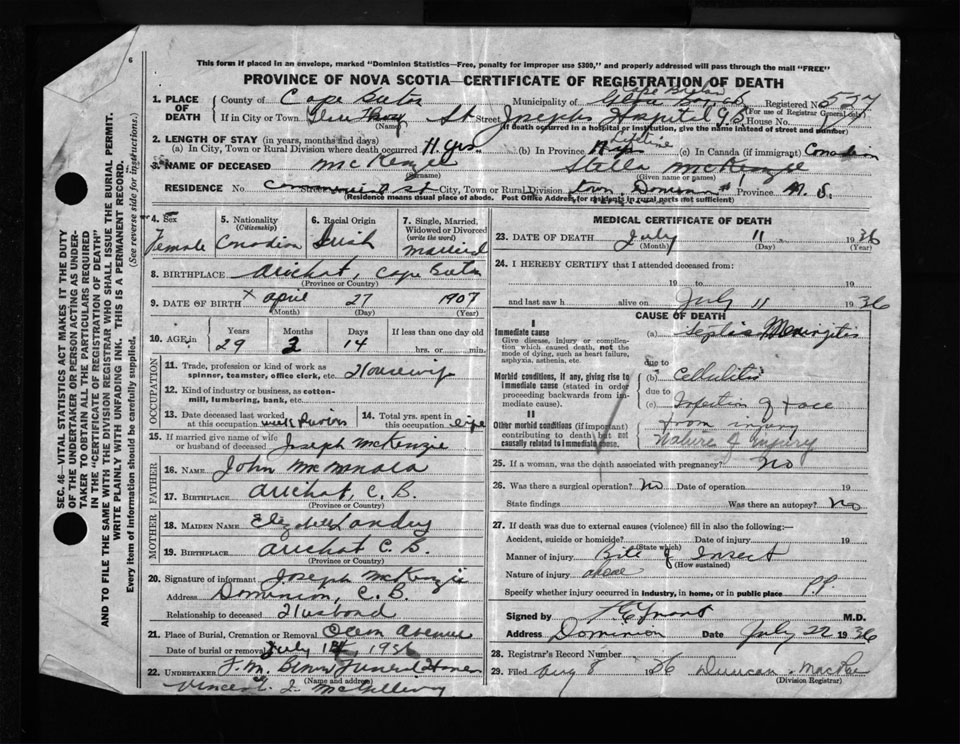 6
This form if placed in an envelope, marked "Dominion Statistics—Free, penalty for improper use $300," and properly addressed will pass through the mail "FREE"
PROVINCE OF NOVA SCOTIA—CERTIFICATE OF REGISTRATION OF DEATH
1. PLACE OF DEATH
County of Cape Breton Municipality of Cape Breton Registered No. 537
(For use of Registrar General only)
If in City or Town Glace Bay St. Street Josephs Hospital G.B. House No.
(Name) (If death occurred in a hospital or institution, give the name instead of street and number)
2. LENGTH OF STAY (in years, months and days)
(a) In City, Town or Rural Division where death occurred 11 yrs. (b) In Province Lifetime (c) In Canada (if immigrant) Canadian
3. NAME OF DECEASED McKenzie Stella McKenzie
(Surname) (Given name or names)
RESIDENCE No. Commercial St City, Town or Rural Division Town Dominion Province N. S.
(Residence means usual place of abode. Post Office Address for residents in rural parts not sufficient)
4. Sex
Female
5. Nationality (Citizenship)
Canadian
6. Racial Origin
Irish
7. Single, Married, Widowed or Divorced (write the word)
Married
8. BIRTHPLACE Arichat, Cape Breton
(Province or Country)
9. DATE OF BIRTH x April 27 1907
(Month) (Day) (Year)
10. AGE in
Years Months Days If less than one day
29 2 14 hrs. or min.
OCCUPATION
11. Trade, profession or kind of work as spinner, teamster, office clerk, etc. Housewife
12. Kind of industry or business, as cotton-mill, lumbering, bank, etc.
13. Date deceased last worked at this occupation week previous
14. Total yrs. spent in this occupation life
15. If married give name of wife or husband of deceased Joseph McKenzie
FATHER
16. NAME John
17. BIRTHPLACE Arichat, C. B.
MOTHER
18. MAIDEN NAME Elizabeth Landry
19. BIRTHPLACE Arichat C. B.
(Province or Country)
20. Signature of informant Joseph McKenzie
Address Dominion, C. B.
Relationship to deceased Husband
21. Place of Burial, Cremation or Removal Ocean Avenue
Date of burial or removal July 14, 1936
22. UNDERTAKER Funeral Home
(Name and address)
Vincent J. McGillivray
MEDICAL CERTIFICATE OF DEATH
23. DATE OF DEATH July 11 1936
(Month) (Day) (Year)
24. I HEREBY CERTIFY that I attended deceased from:
19 to 19
and last saw h alive on July 11 1936
CAUSE OF DEATH
I
Immediate cause
Give disease, injury or complication which caused death, not the mode of dying, such as heart failure, asphyxia, asthenia, etc.
(a) Septic Meningitis
due to
Morbid conditions, if any, giving rise to immediate cause (stated in order proceeding backwards from immediate cause).
(b) Cellulitis
due to
(c) Infection of face
II
Other morbid conditions (if important) contributing to death but not causally related to immediate cause.
from injury
Nature of Injury
25. If a woman, was the death associated with pregnancy? No
26. Was there a surgical operation? No Date of operation 19
State findings Was there an autopsy? No
27. If death was due to external causes (violence) fill in also the following:—
Accident, suicide or homicide? Date of injury 19
(State which)
Manner of injury Bite of Insect
(How sustained)
Nature of injury above
Specify whether injury occurred in industry, in home, or in public place P.P.
Signed by M.D.
Address Dominion Date July 22 1936
28. Registrar's Record Number
29. Filed Aug 8 1936 Duncan MacRae
(Division Registrar)
SEC. 46—VITAL STATISTICS ACT MAKES IT THE DUTY
OF THE UNDERTAKER OR PERSON ACTING AS UNDER-
TAKER TO OBTAIN ALL THE PARTICULARS REQUIRED
IN THE "CERTIFICATE OF REGISTRATION OF DEATH"
AND TO FILE THE SAME WITH THE DIVISION REGISTRAR WHO SHALL ISSUE THE BURIAL PERMIT.
WRITE PLAINLY WITH UNFADING INK. THIS IS A PERMANENT RECORD.
Every item of Information should be carefully supplied. (See reverse side for instructions.)